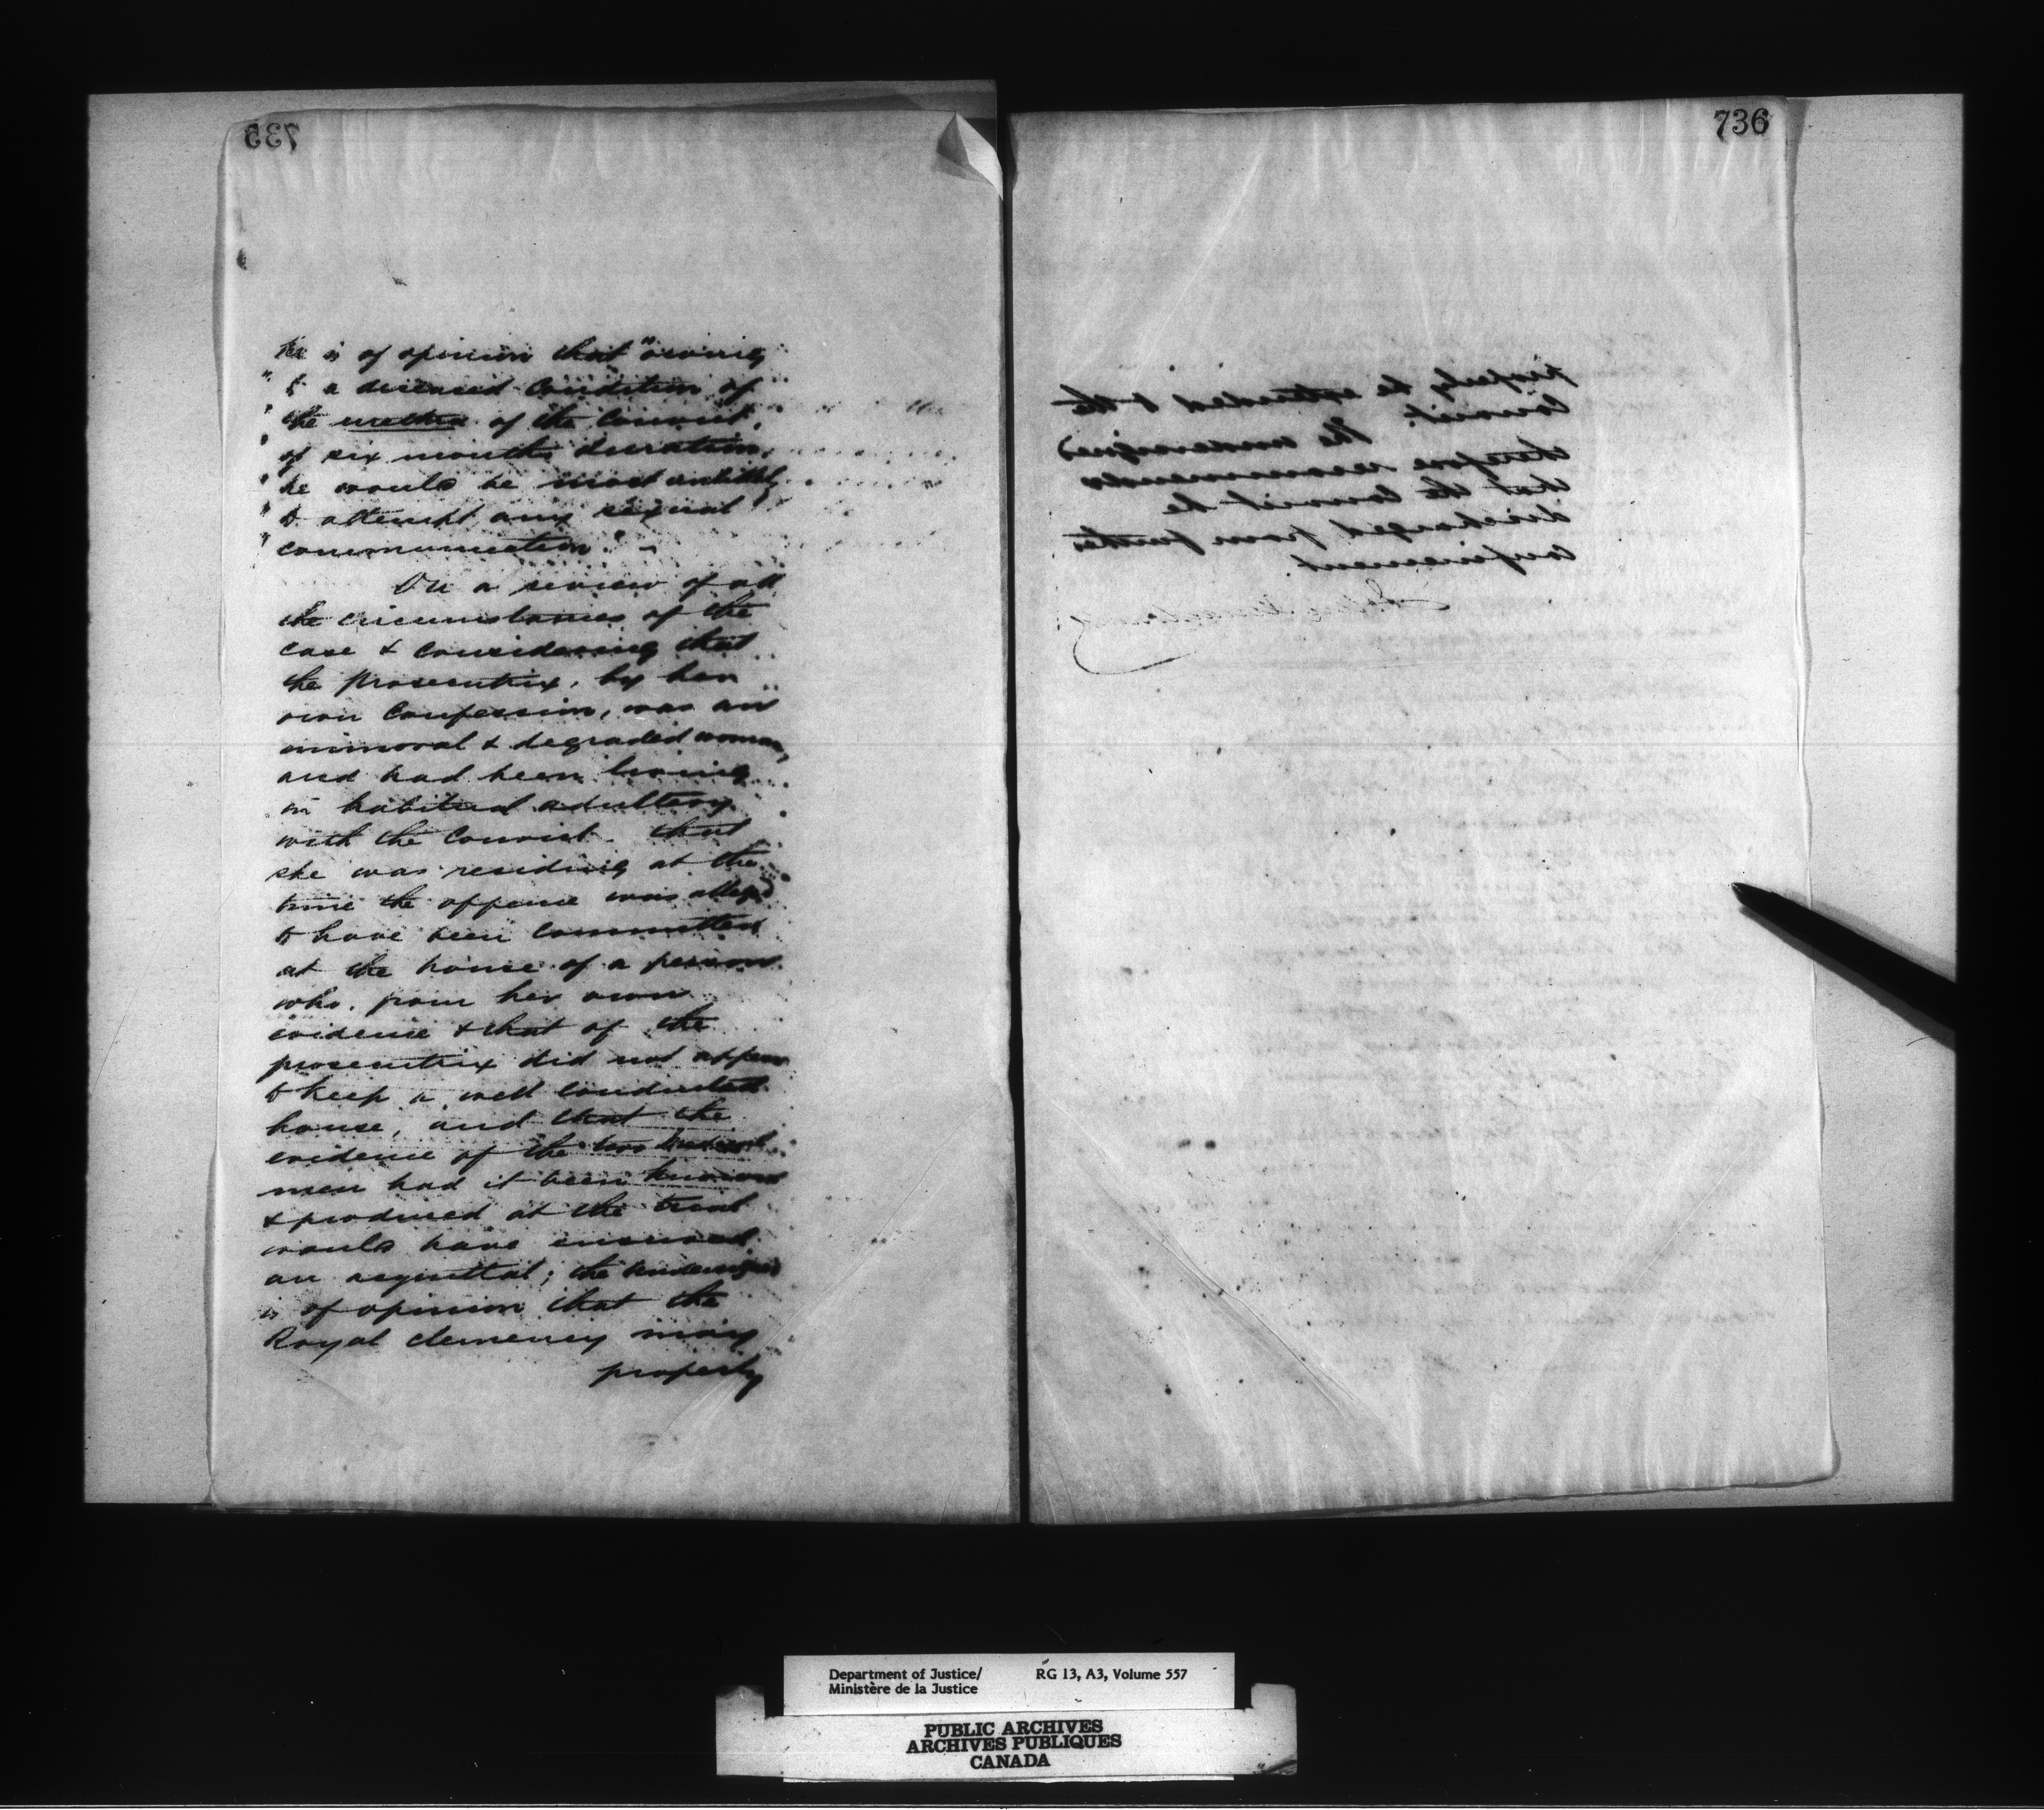 735
He is of opinion that "owing
" to a diseased condition of
" the urethra of the Convict,
" of six months duration,
" he would be most unlikely
" to attempt any sexual
" communication." -
On a review of all
the circumstances of the
case & considering that
the prosecutrix, by her
own Confession, was an
immoral & degraded woman,
and had been living
in habitual adultery
with the Convict that
she was residing at the
time the offence was alleged
to have been committed
at the house of a person
who, from her own
evidence & that of the
prosecutrix did not appear
to keep a well conducted
house, and that the
evidence of the two medical
men had it been known
& produced at the trial
would have ensured
an acquittal; the undersigned
is of opinion that the
Royal clemency may
properly
736
properly be extended to the
Convict. The undersigned
therefore recommends
that the Convict be
discharged from further
confinement.
Department of Justice/
Ministère de la Justice
RG 13, A3, Volume 557
PUBLIC ARCHIVES
ARCHIVES PUBLIQUES
CANADA